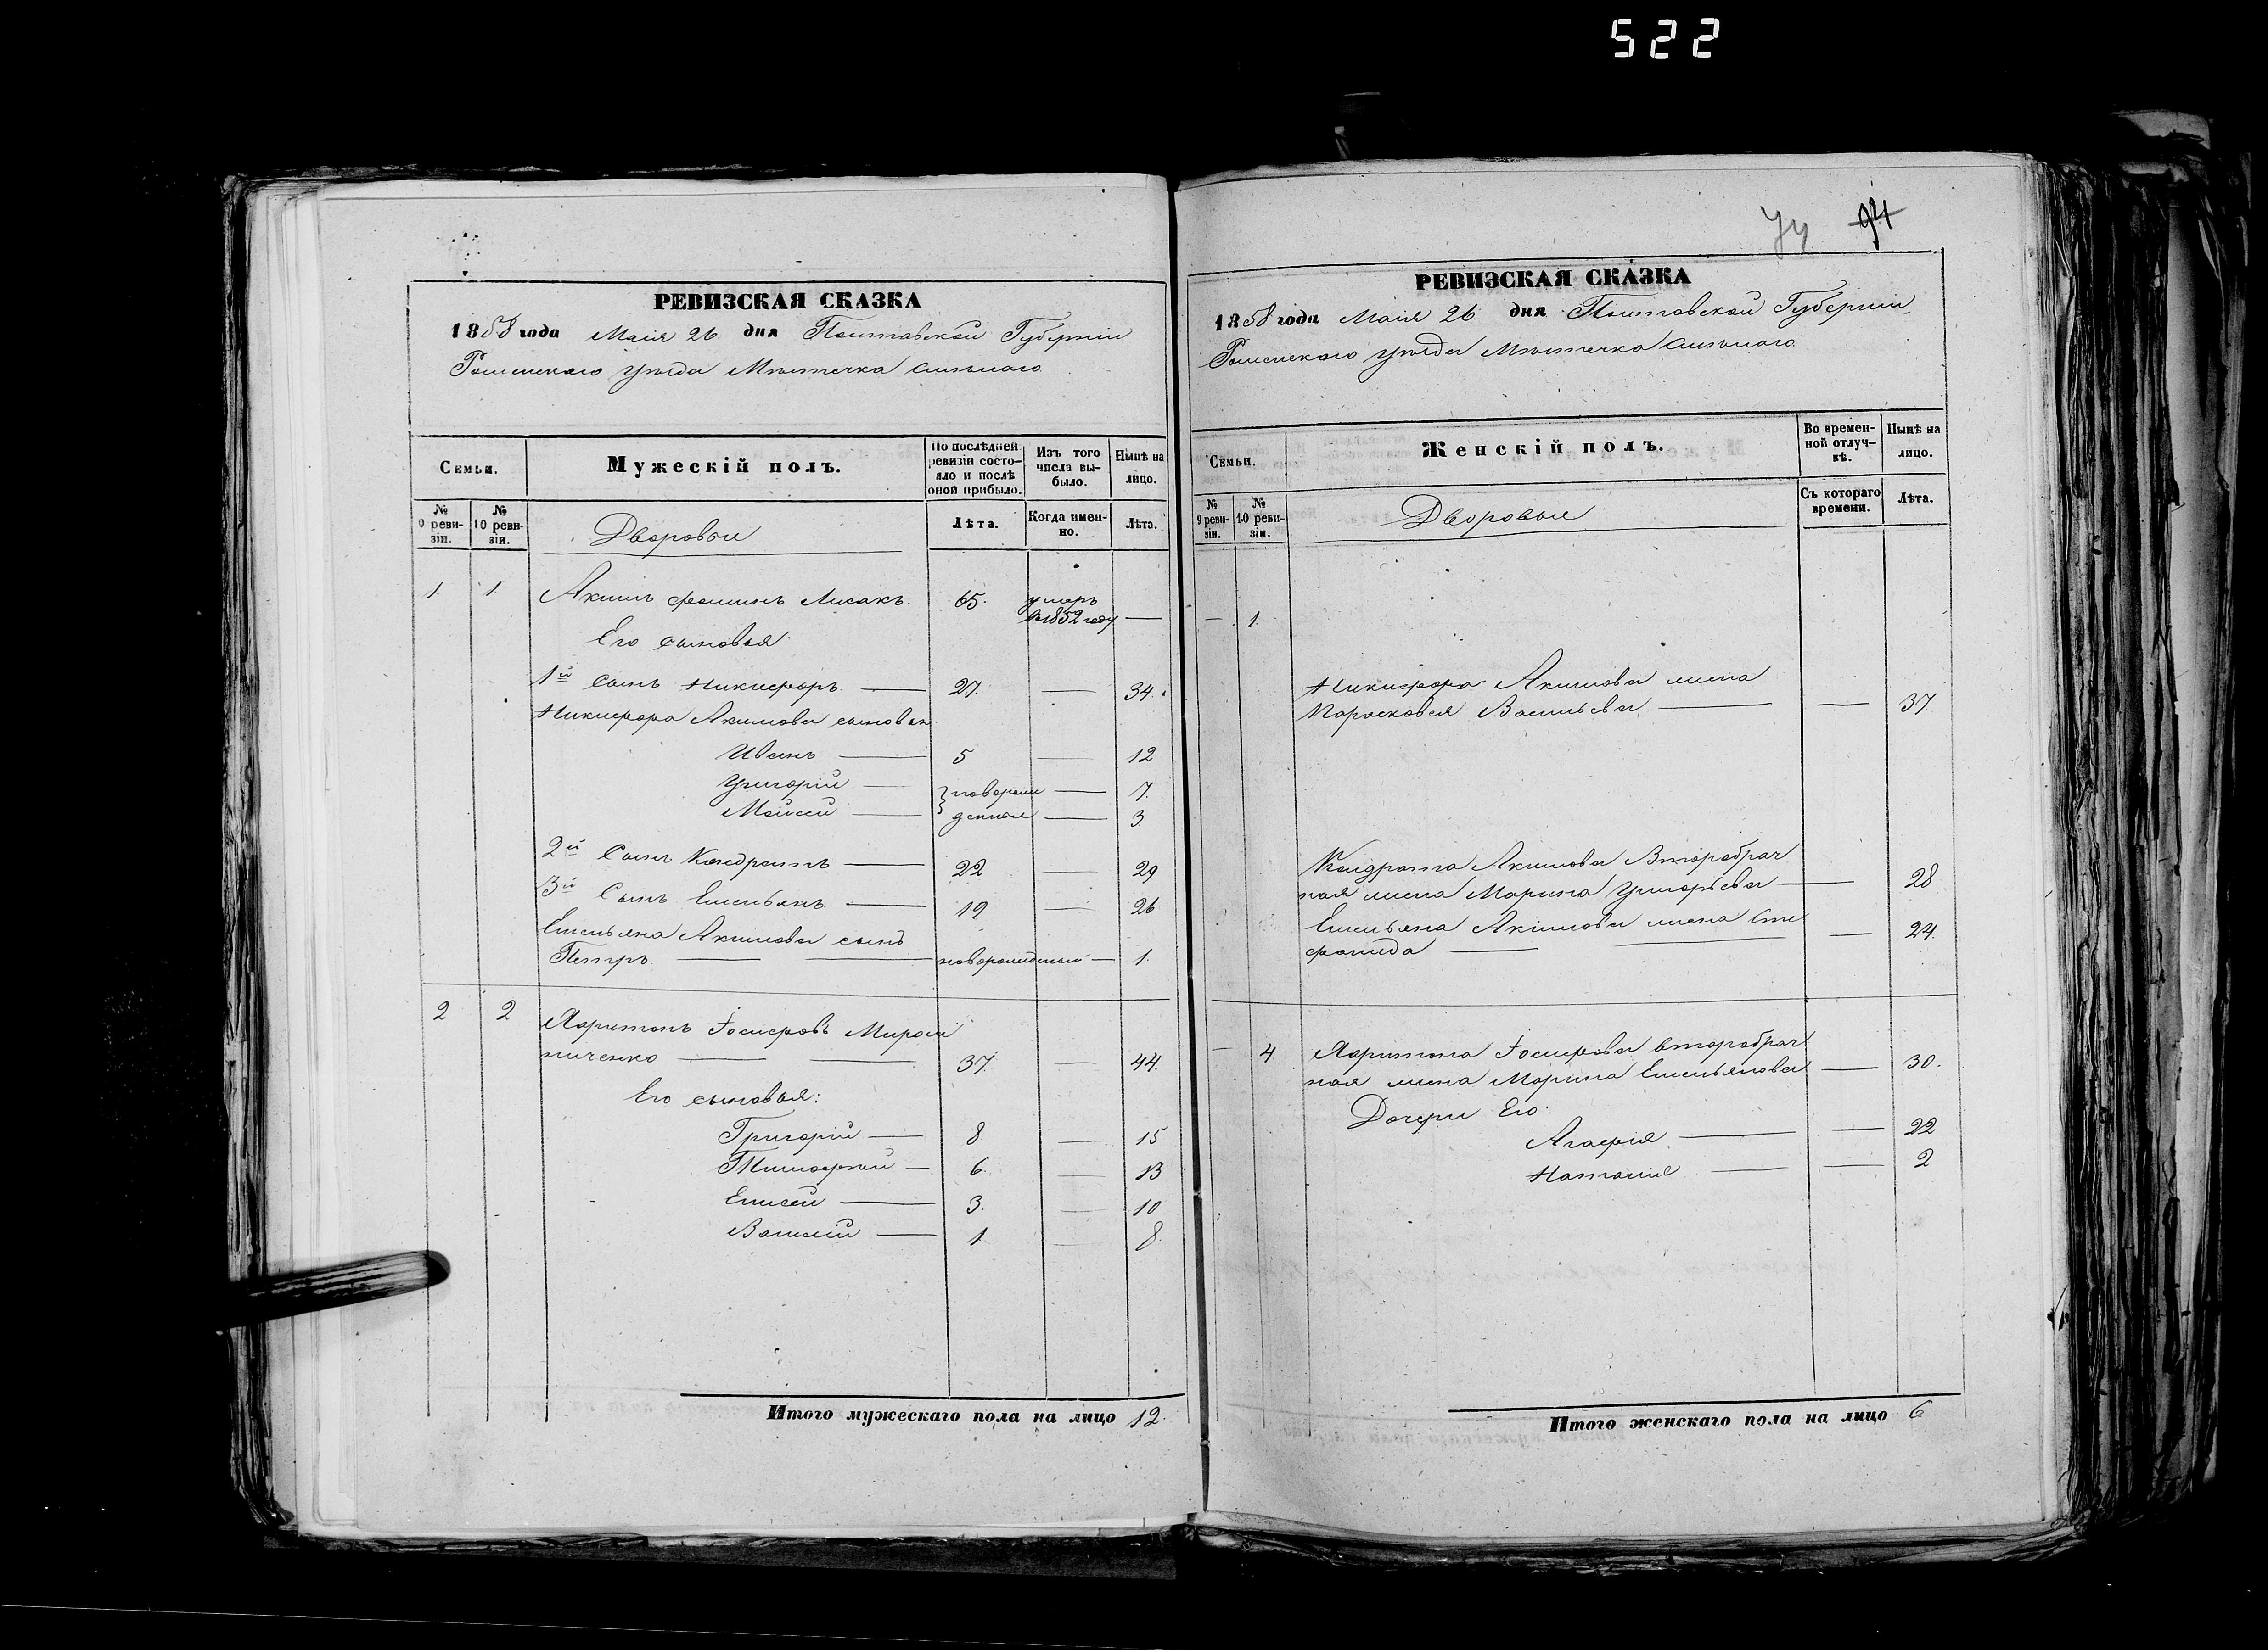 522
94
РЕВИЗСКАЯ СКАЗКА
1858 года Маія 26 дня Полтавской Губерніи
Роменскаго уѣзда Мѣстечка Смѣлаго
Семьи.
Мужескій полъ.
По послѣдней ревизіи состояло и послѣ оной прибыло.
Изъ того числа выбыло.
Нынѣ на лицо.
№ 9 ревизіи.
№ 10 ревизіи.
Дворовые
Лѣта.
Когда именно.
Лѣта.
1 1 Акимъ Фоминъ Лисакъ 65. умеръ въ 1852 году —
Его сыновья
1й Сынъ Никифоръ — 27. — 34.
Никифора Акимова сыновья
Иванъ — 5 — 12
Григорій — новорож — 7.
Мойсей — денные — 3
2й Сынъ Кондратъ — 22 — 29
3й Сынъ Емельянъ — 19 — 26
Емельяна Акимова сынъ
Петръ — — новорожденный — 1.
2 2 Харитонъ Іосифовъ Мирош
ниченко — — 37. — 44.
Его сыновья:
Григорій — 8 — 15
Тимофей — 6. — 13
Елисей — 3. — 10
Василій — 1 — 8.
Итого мужескаго пола на лицо 12.
РЕВИЗСКАЯ СКАЗКА
1858 года Маія 26 дня Полтавской Губерніи
Роменскаго уѣзда Мѣстечка Смѣлаго
Семьи.
Женскій полъ.
Во временной отлучкѣ.
Нынѣ на лицо.
№ 9 ревизіи.
№ 10 ревизіи.
Дворовые
Съ котораго времени.
Лѣта.
— 1.
Никифора Акимова жена
Парасковея Васильева — — 37
Кондрата Акимова Второбрач
ная жена Марина Григорьева — — 28
Емельяна Акимова жена Сте
фанида — — 24.
— 4. Харитона Іосифова второбрач
ная жена Марина Емельянова — 30.
Дочери Его
Агафія — — 22
Наталія — — 2
Итого женскаго пола на лицо 6